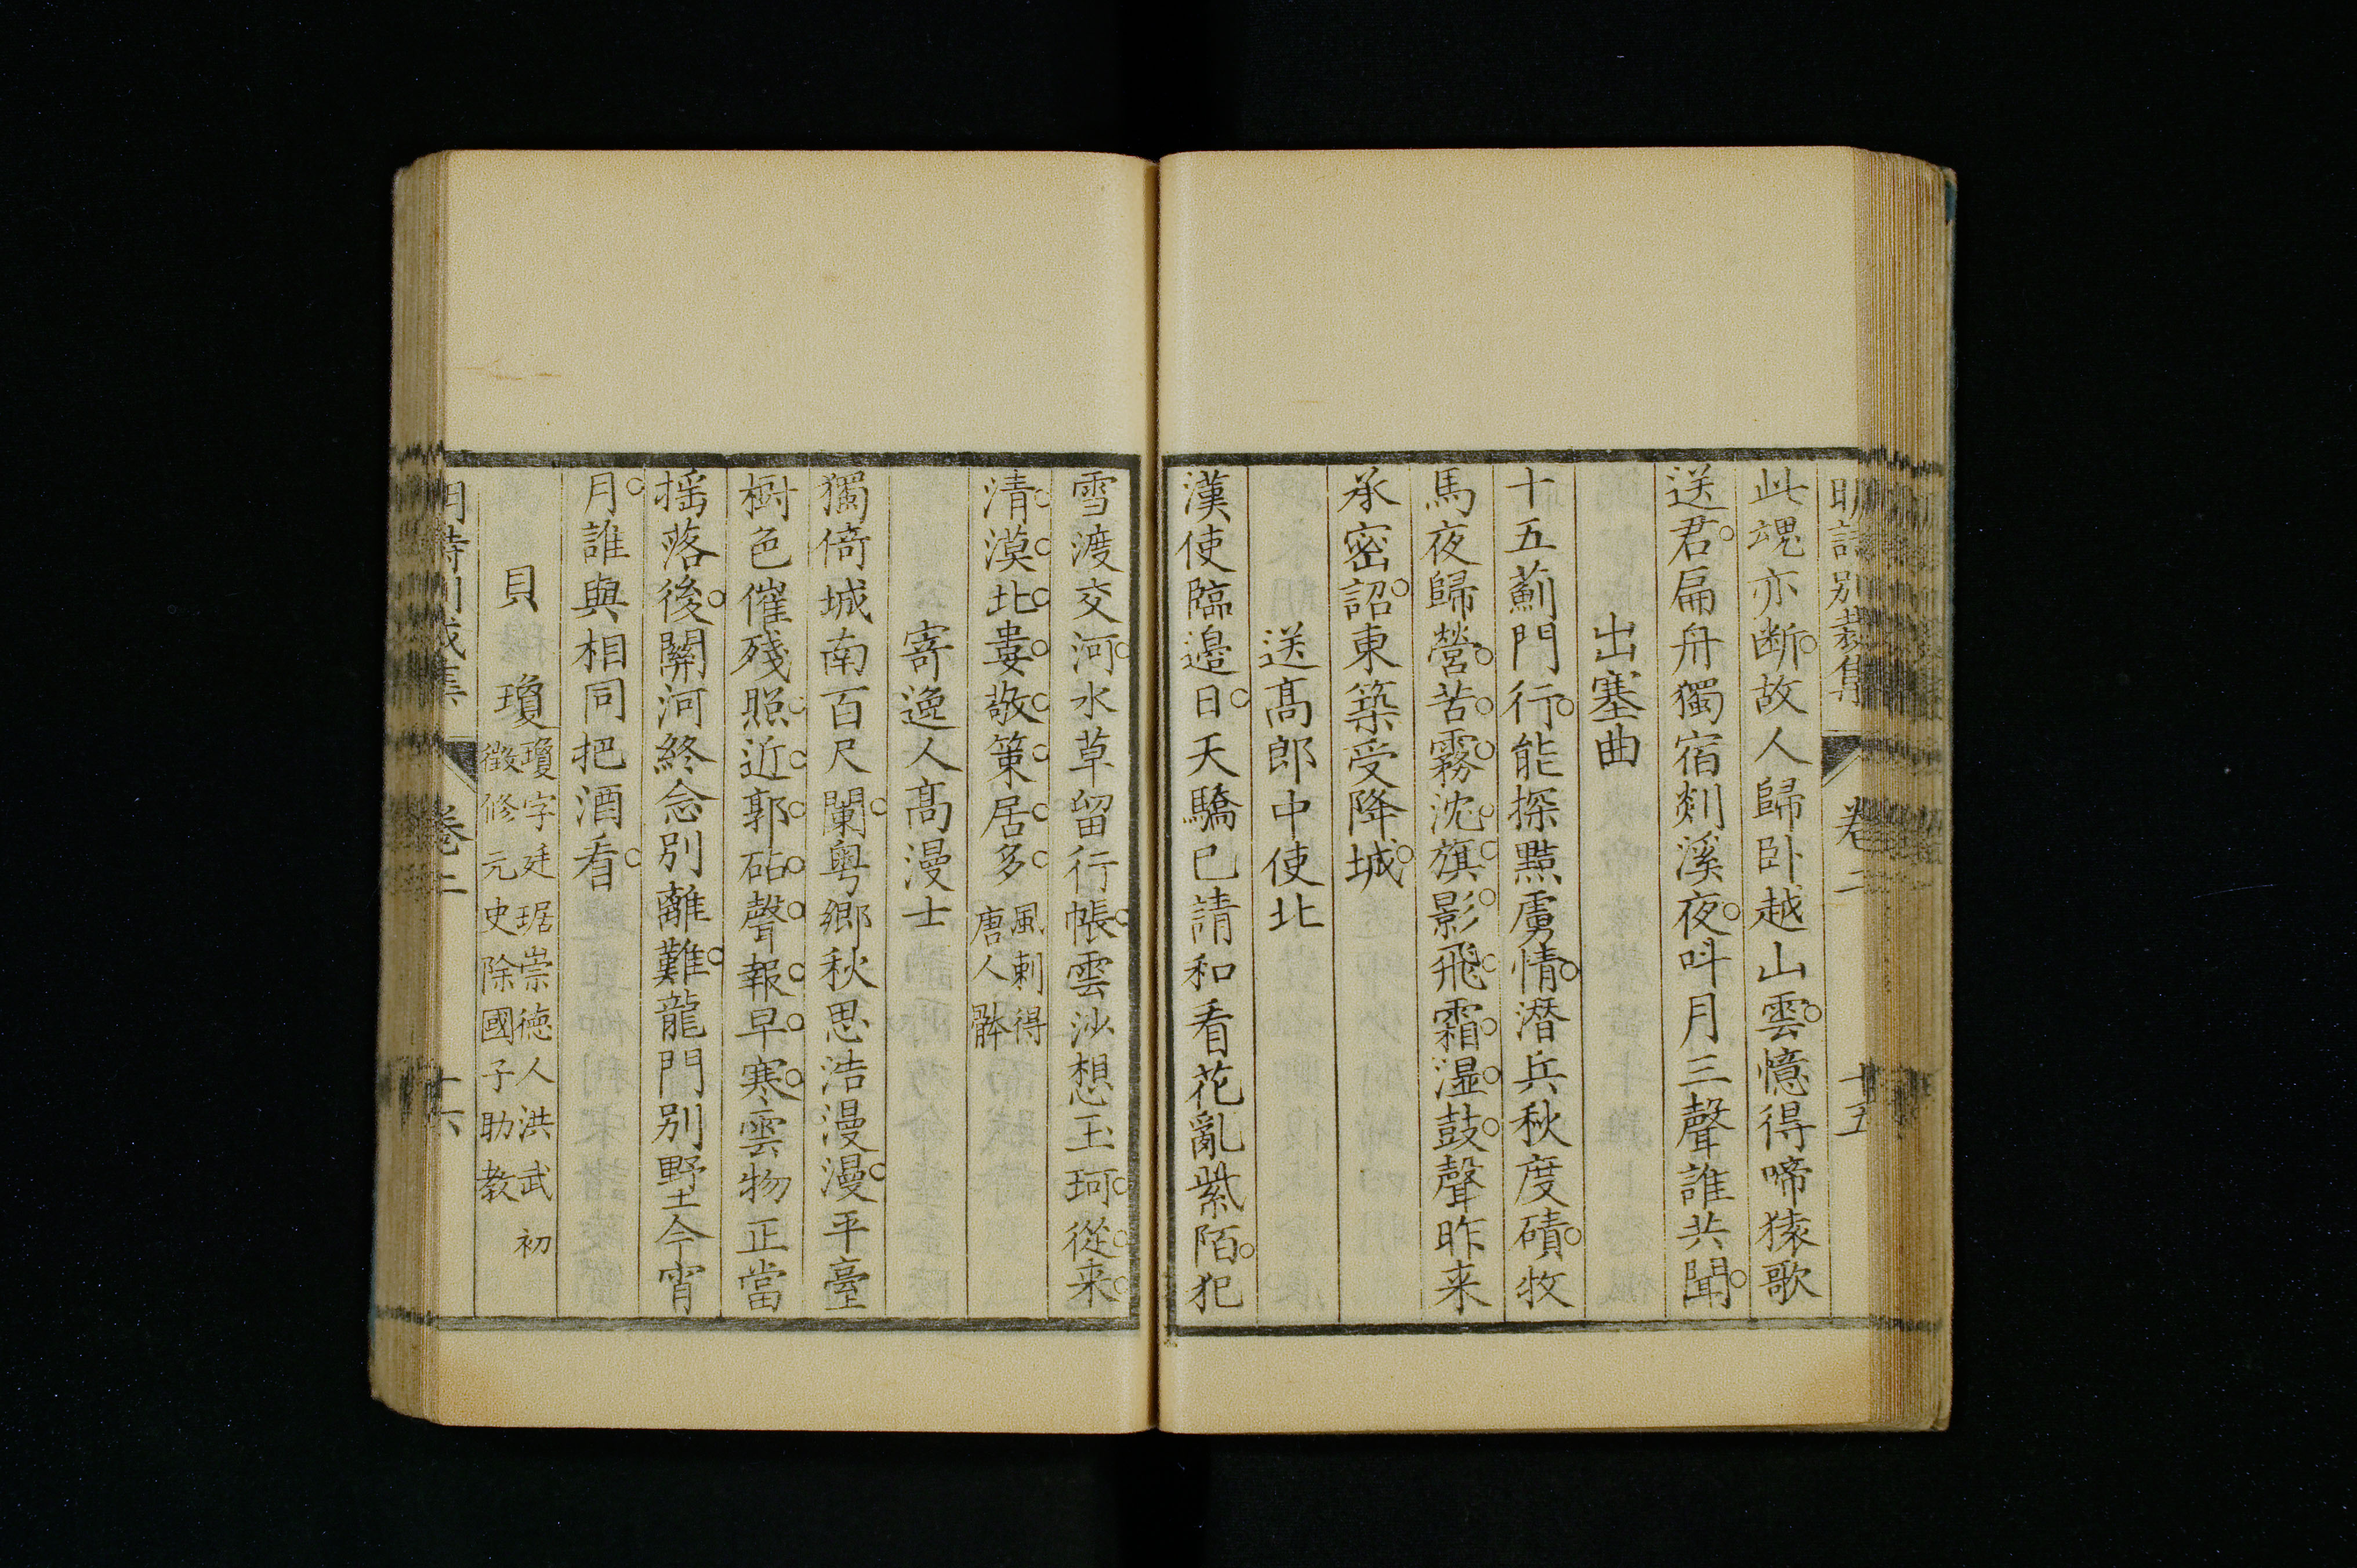 明詩別裁集 卷二 十五
此魂亦断故人歸卧越山雲憶得啼猿歌
送君扁舟獨宿剡溪夜呌月三聲誰共聞
出塞曲
十五薊門行能探黠虜情潛兵秋度磧牧
馬夜歸營苦霧沈旗影飛霜湿鼓聲昨来
承密詔東築受降城
送髙郎中使北
漢使臨邉日天驕已請和看花亂紫陌犯
雪渡交河水草留行帳雲沙想玉珂從来
清漠北婁敬策居多
風刺得
唐人骵
寄逸人髙漫士
獨倚城南百尺闌粤鄉秋思浩漫漫平臺
樹色催殘照近郭砧聲報早寒雲物正當
揺落後關河終念別離難龍門別野今宵
月誰與相同把酒看
貝瓊
瓊字廷琚崇德人洪武初
徵修元史除國子助教
明詩別裁集 卷二 十六